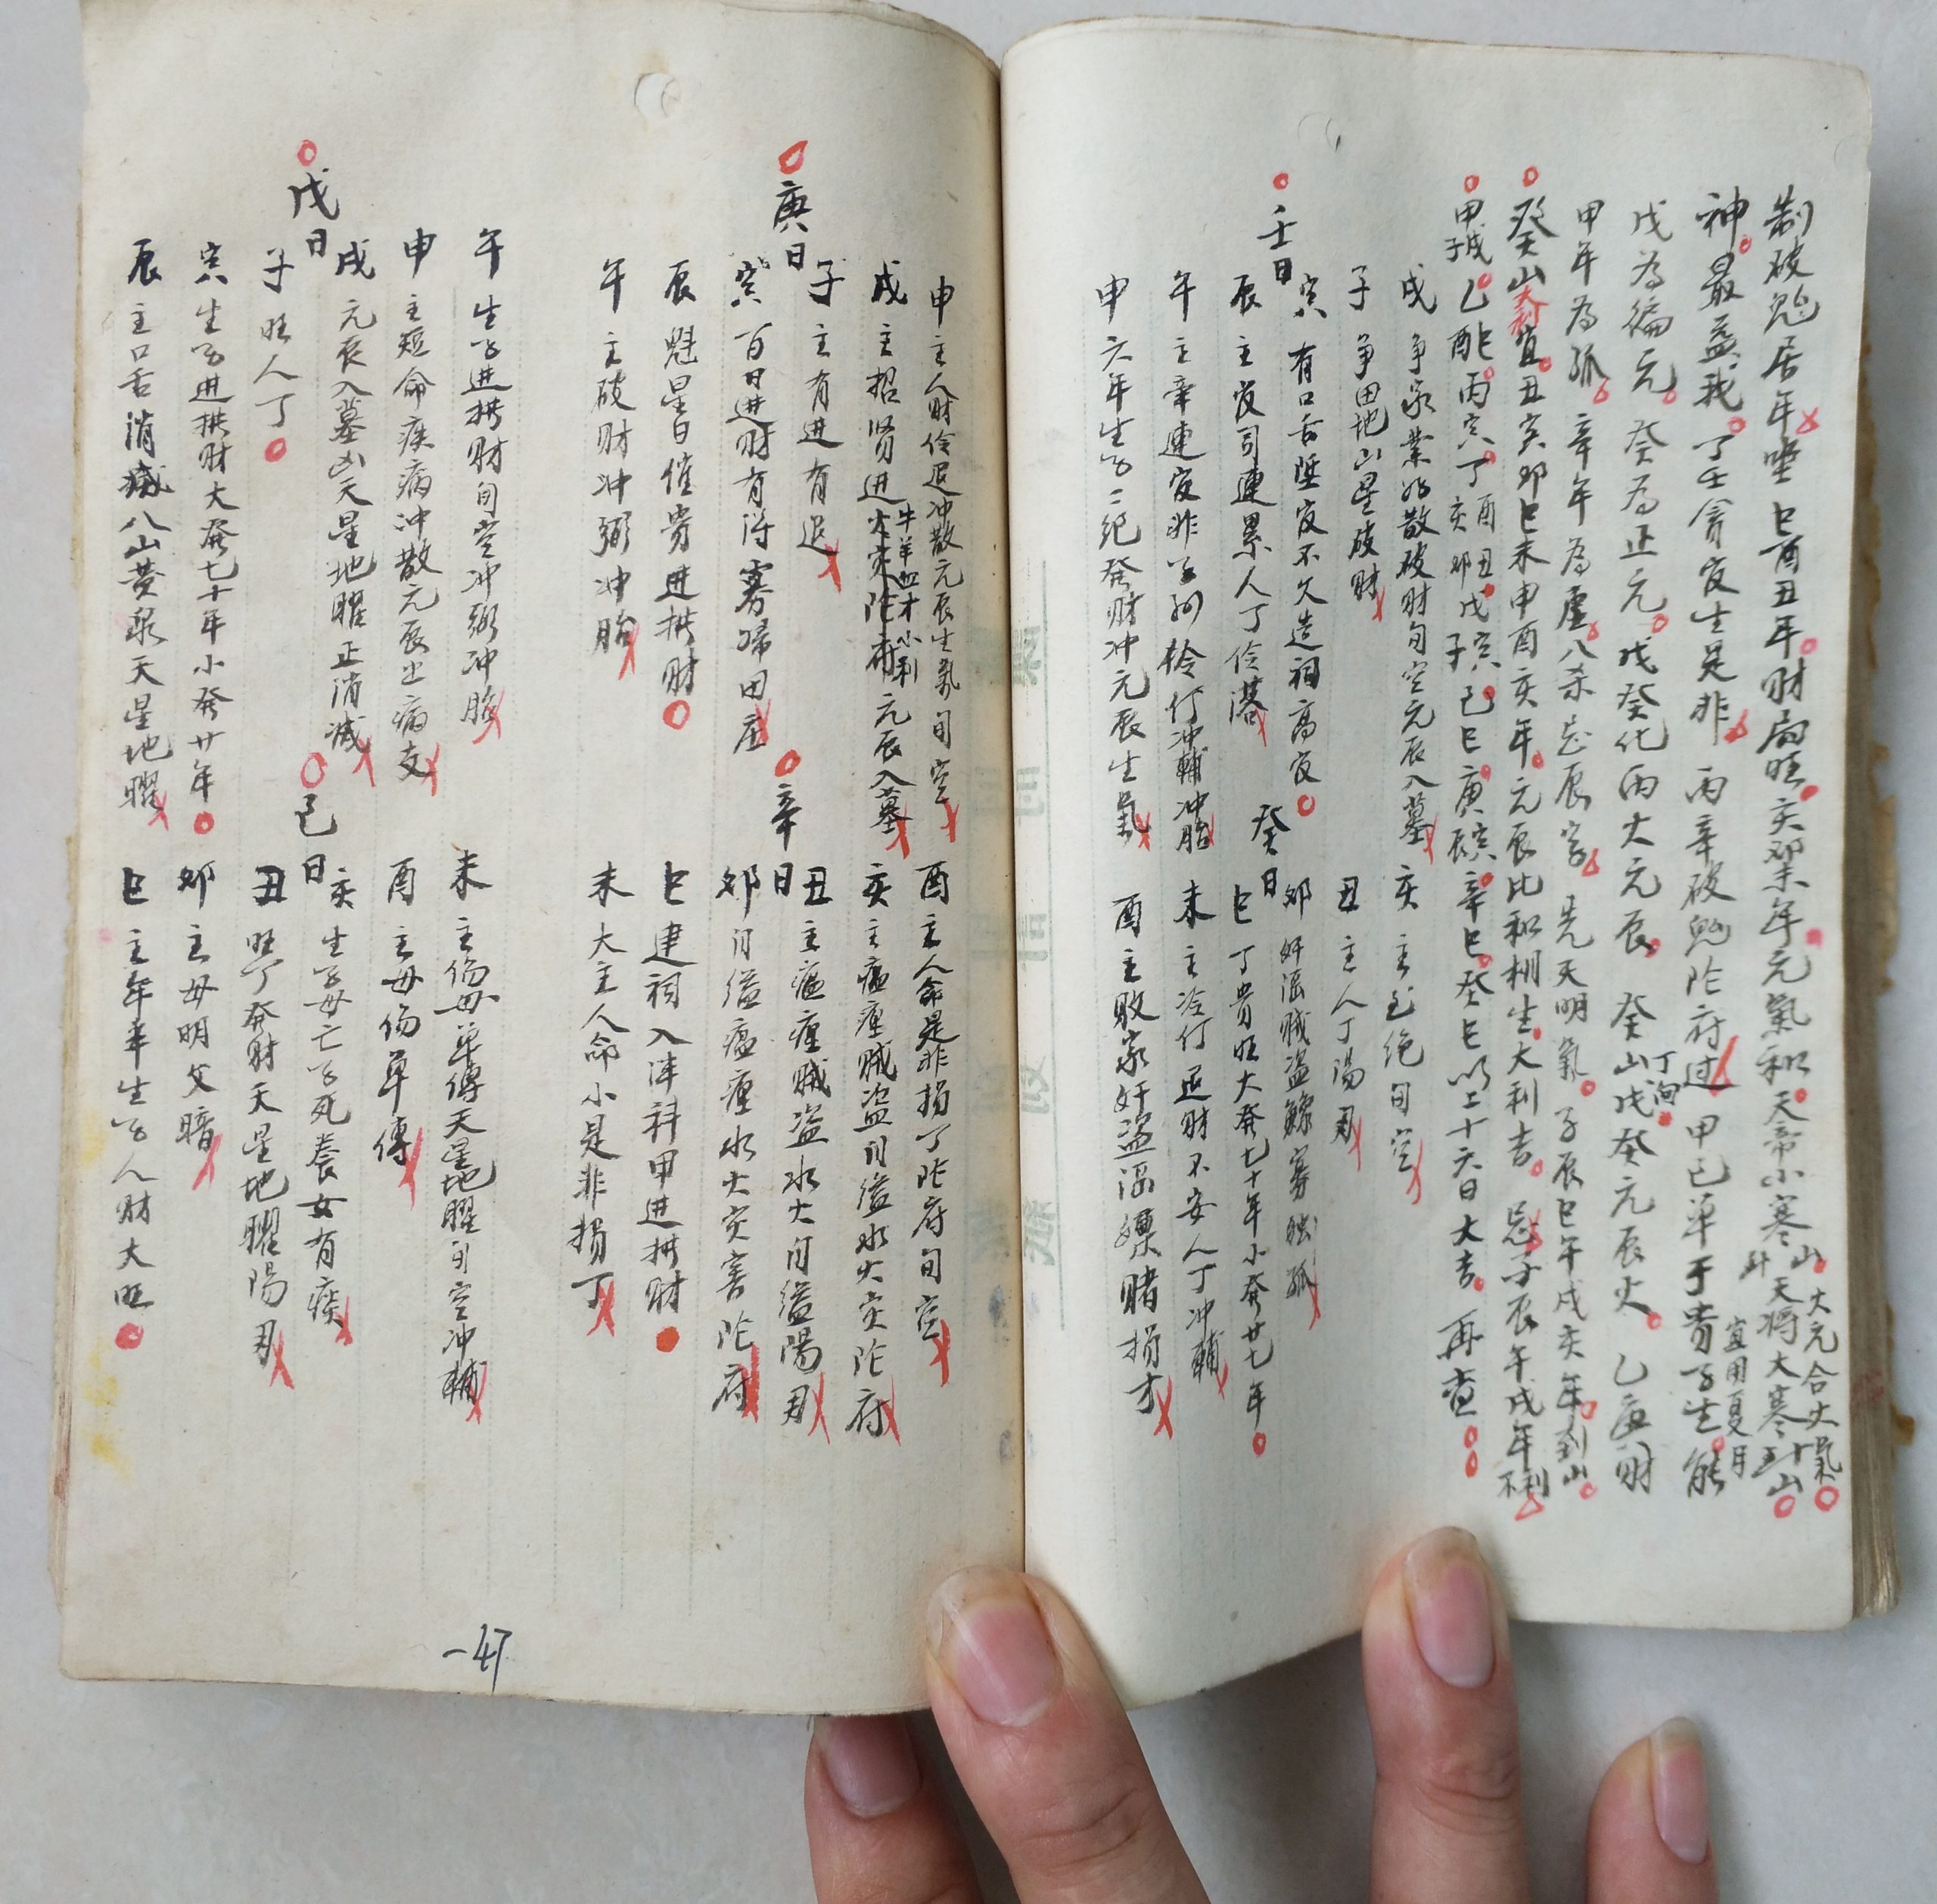 制破鬼居年壘巳酉丑年財局旺亥年元氣和天帝小寒斗山天將大寒五十山
大元合火氣
神最益我丁壬貪官生是非丙辛破鬼陀府过甲己单于貴子生能
宜用夏月
戊為偏元癸為正元戊癸化丙火元辰癸山戊癸元辰火乙庚財
丁泃
甲年為孤辛年為虛八杀忌辰字先天明氣子辰巳午戌亥年到山
癸山大利宜丑寅卯巳未申酉亥年元辰比和相生大利吉忌子辰午戌年不利
甲戌子乙酉巳丙寅丁酉丑亥卯戊寅子己巳庚辰寅辛巳癸巳以上十六日大吉再查
戌争家業好散破財旬空元辰入墓
子争田地山星破財
壬日
寅有口舌陞官不久造祠高官
辰主官司連累人丁伶
午主幸連官非子孙
申六年生子二纪發财冲元辰生氣
亥主絕旬空
丑主人丁陽刃
癸日
卯奸淫贼盗鰥寡独孤
巳丁貴旺大發七十年小發廿七年
未主冷行退财不安人丁冲輔
酉主敗家奸盗淫嫖赌損才
申主人财伶退冲散元辰生氣旬空
戌主招贤进牛羊血才小利火灾陀府元辰入墓
庚日
子主有进有退
寅百日进财有得寡婦田庄
辰魁星日催贵进横财
午主破财冲弼冲胎
酉主人命是非損丁陀府旬空
亥主瘟瘴贼盗自缢水火灾陀府
辛日
丑主瘟瘴贼盗水火自缢陽刃
卯自缢瘟瘴水火灾害陀府
巳建祠入泮科甲进横财
未大主人命小是非損丁
午生子进横财旬空冲弼冲胎
申主短命疾病冲散元辰生病支
戌元辰入墓凶天星地曜正消滅
戊日
子旺人丁
寅生子进横财大發七十年小發廿年
辰主口舌消滅八山黄泉天星地曜
未主伤母单傳天星地曜旬空冲輔
酉主母伤单傳
己日
亥生子母亡子死養女有疾
丑旺丁發财天星地曜陽刃
卯主母明父暗
巳主年幸生子人财大旺
-47